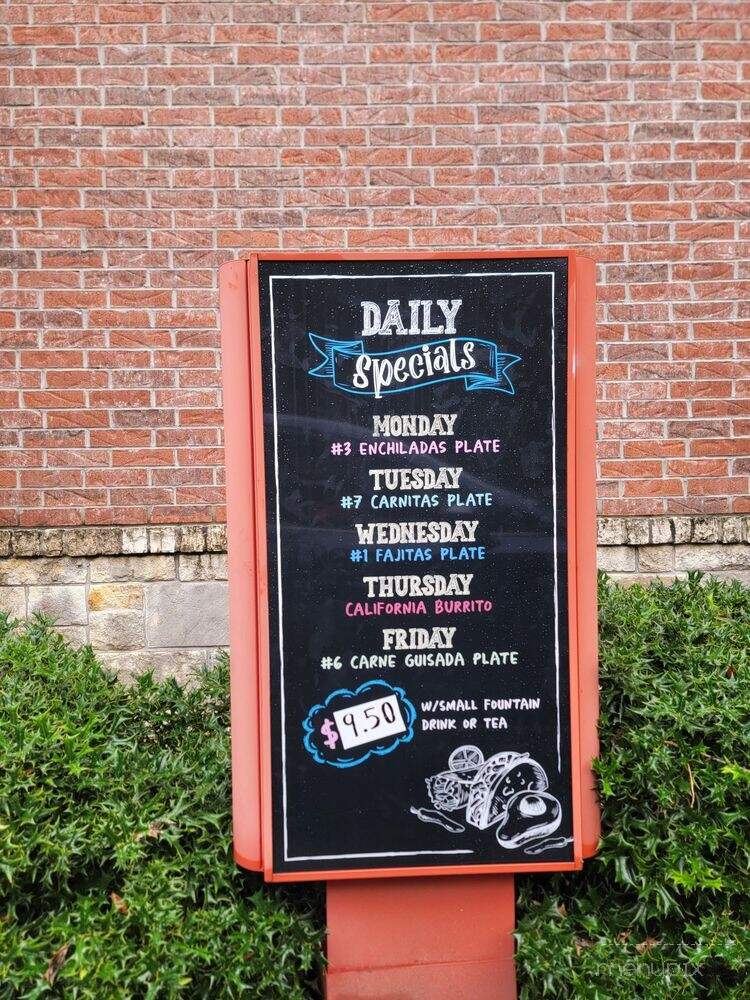 DAILY
Specials
MONDAY
#3 ENCHILADAS PLATE
TUESDAY
#7 CARNITAS PLATE
WEDNESDAY
#1 FAJITAS PLATE
THURSDAY
CALIFORNIA BURRITO
FRIDAY
#6 CARNE GUISADA PLATE
$9.50
W/SMALL FOUNTAIN
DRINK OR TEA
menupix